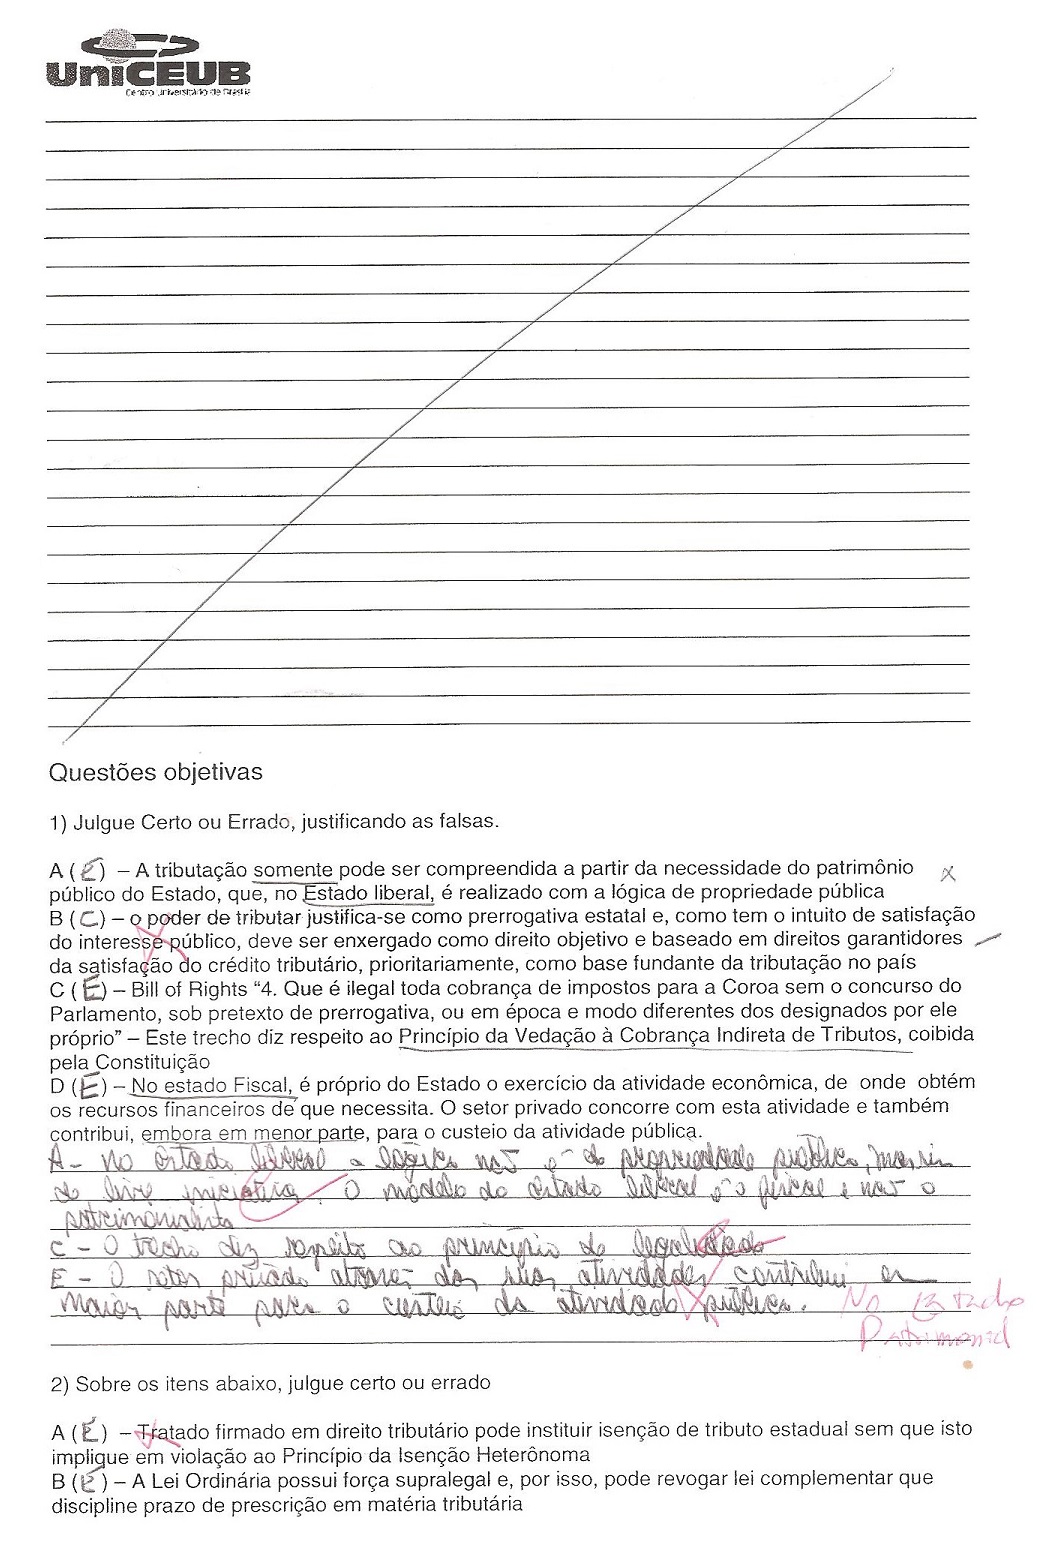 UniCEUB
Centro Universitário de Brasília
Questões objetivas
1) Julgue Certo ou Errado, justificando as falsas.
A (E) – A tributação somente pode ser compreendida a partir da necessidade do patrimônio
público do Estado, que, no Estado liberal, é realizado com a lógica de propriedade pública
B (C) – o poder de tributar justifica-se como prerrogativa estatal e, como tem o intuito de satisfação
do interesse público, deve ser enxergado como direito objetivo e baseado em direitos garantidores
da satisfação do crédito tributário, prioritariamente, como base fundante da tributação no país
C (E) – Bill of Rights “4. Que é ilegal toda cobrança de impostos para a Coroa sem o concurso do
Parlamento, sob pretexto de prerrogativa, ou em época e modo diferentes dos designados por ele
próprio” – Este trecho diz respeito ao Princípio da Vedação à Cobrança Indireta de Tributos, coibida
pela Constituição
D (E) – No estado Fiscal, é próprio do Estado o exercício da atividade econômica, de onde obtém
os recursos financeiros de que necessita. O setor privado concorre com esta atividade e também
contribui, embora em menor parte, para o custeio da atividade pública.
A - no estado liberal a lógica não é de propriedade pública, mas sim
de livre iniciativa. O modelo do estado liberal é o fiscal e não o
patrimonialista
C - O trecho diz respeito ao princípio da legalidade
E - O setor privado através das suas atividades contribui em
maior parte para o custeio da atividade pública. No Estado
Patrimonial
2) Sobre os itens abaixo, julgue certo ou errado
A (E) – Tratado firmado em direito tributário pode instituir isenção de tributo estadual sem que isto
implique em violação ao Princípio da Isenção Heterônoma
B (E) – A Lei Ordinária possui força supralegal e, por isso, pode revogar lei complementar que
discipline prazo de prescrição em matéria tributária